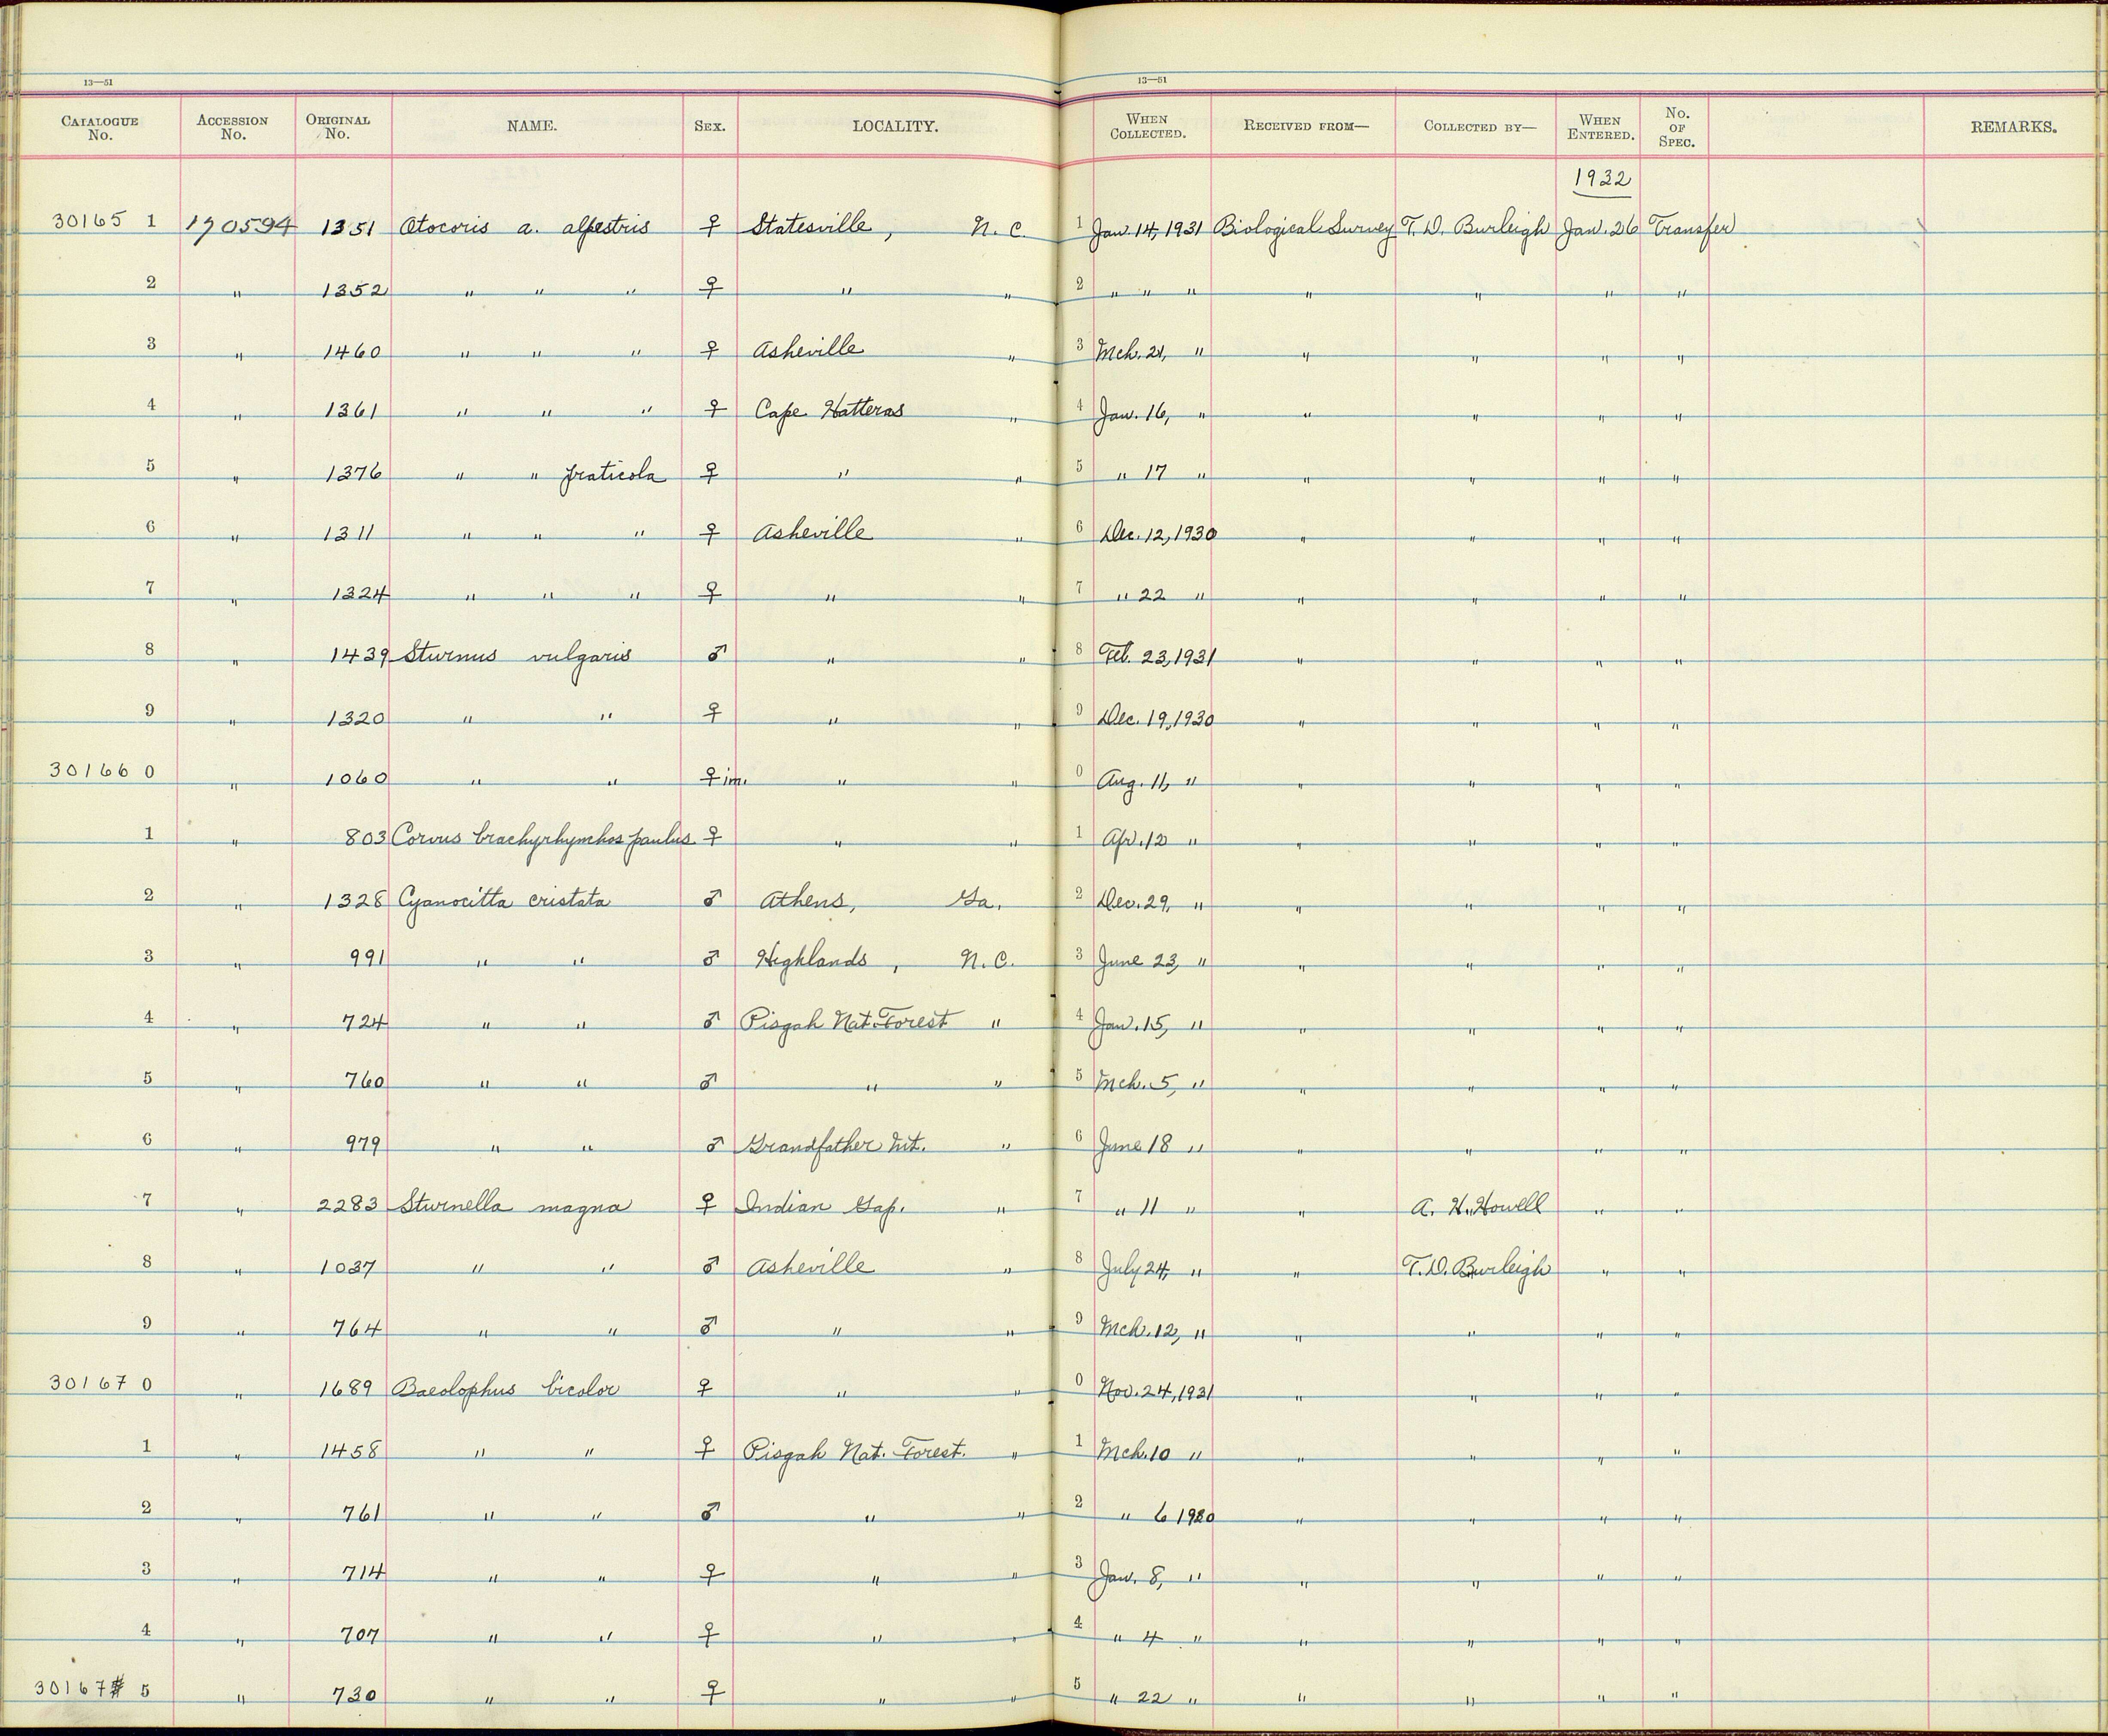 13—51 13—51
CATALOGUE No. ACCESSION No. ORIGINAL No. NAME. SEX. LOCALITY. WHEN COLLECTED. RECEIVED FROM— COLLECTED BY— WHEN ENTERED. No. OF SPEC. REMARKS.
1932
30165 1 170594 1351 Otocoris a. alpestris ♀ Statesville, N. C. 1 Jan. 14, 1931 Biological Survey T. D. Burleigh Jan. 26 Transfer
2 " 1352 " " " ♀ " " 2 " " " " " " "
3 " 1460 " " " ♀ Asheville " 3 Mch. 21, " " " " "
4 " 1361 " " " ♀ Cape Hatteras " 4 Jan. 16, " " " " "
5 " 1376 " " praticola ♀ " " 5 " 17 " " " " "
6 " 1311 " " " ♀ Asheville " 6 Dec. 12, 1930 " " " "
7 " 1324 " " " ♀ " " 7 " 22 " " " " "
8 " 1439 Sturnus vulgaris ♂ " " 8 Feb. 23, 1931 " " " "
9 " 1320 " " ♀ " " 9 Dec. 19, 1930 " " " "
30166 0 " 1060 " " ♀ im. " " 0 Aug. 11, " " " " "
1 " 803 Corvus brachyrhynchos paulus ♀ " " 1 Apr. 12 " " " " "
2 " 1328 Cyanocitta cristata ♂ Athens, Ga. 2 Dec. 29, " " " " "
3 " 991 " " ♂ Highlands, N. C. 3 June 23, " " " " "
4 " 724 " " ♂ Pisgah Nat. Forest " 4 Jan. 15, " " " " "
5 " 760 " " ♂ " " 5 Mch. 5, " " " " "
6 " 979 " " ♂ Grandfather Mt. " 6 June 18 " " " " "
7 " 2283 Sturnella magna ♀ Indian Gap. " 7 " 11 " " A. H. Howell " "
8 " 1037 " " ♂ Asheville " 8 July 24, " " T. D. Burleigh " "
9 " 764 " " ♂ " " 9 Mch. 12, " " " " "
30167 0 " 1689 Baeolophus bicolor ♀ " " 0 Nov. 24, 1931 " " " "
1 " 1458 " " ♀ Pisgah Nat. Forest. " 1 Mch. 10 " " " " "
2 " 761 " " ♂ " " 2 " 6 1930 " " " "
3 " 714 " " ♀ " " 3 Jan. 8, " " " " "
4 " 707 " " ♀ " " 4 " 4 " " " " "
30167 5 " 730 " " ♀ " " 5 " 22 " " " " "